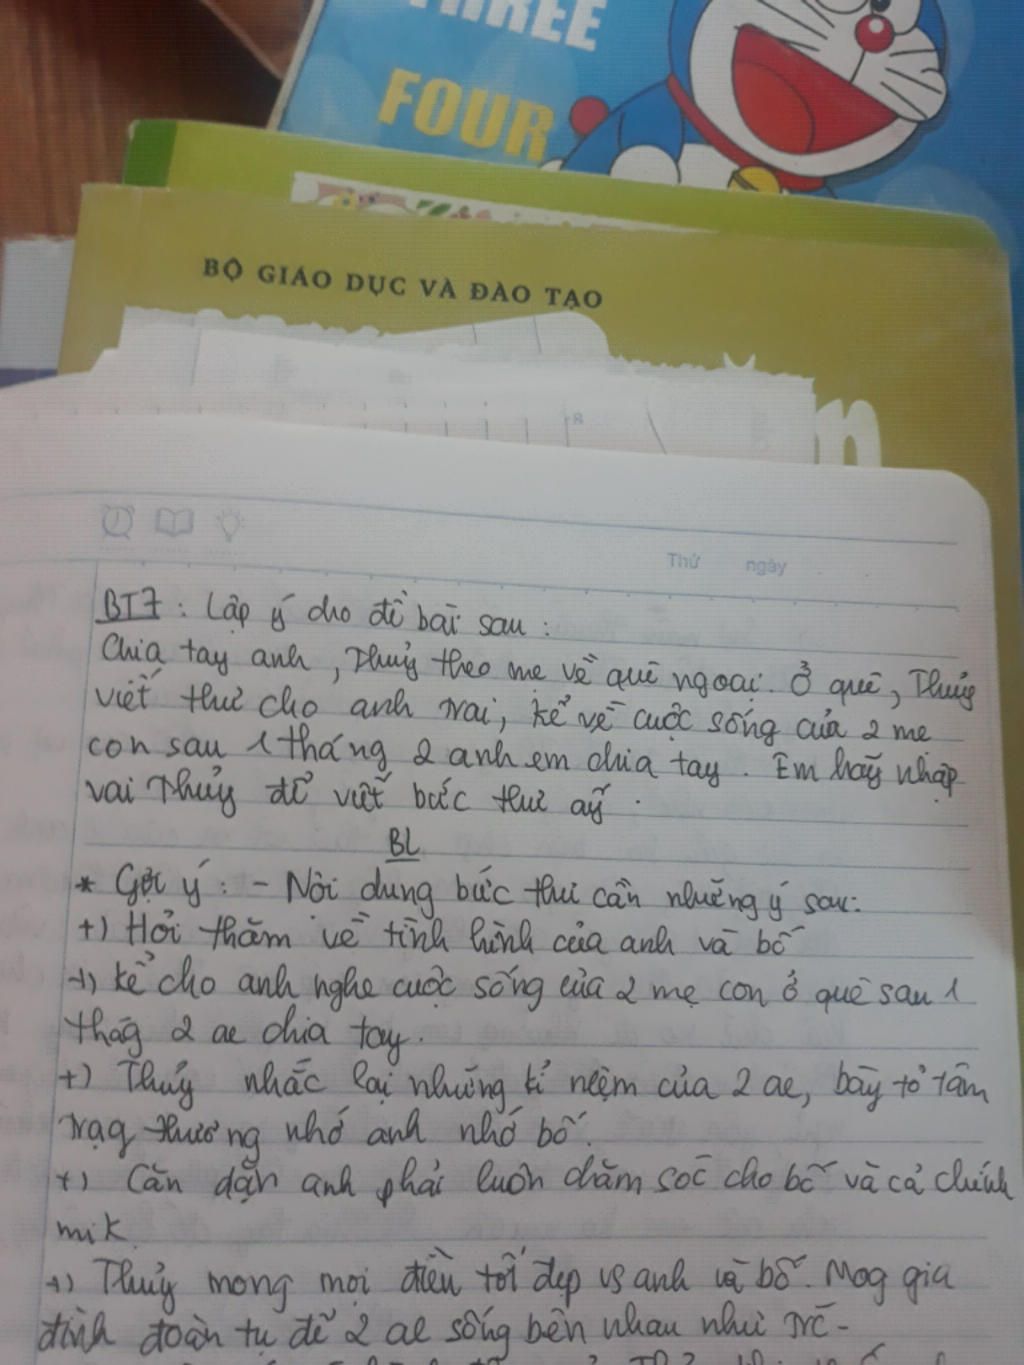 THREE
FOUR
BỘ GIÁO DỤC VÀ ĐÀO TẠO
8
n
Thứ ngày
BT7 : Lập ý cho đề bài sau :
Chia tay anh, Thuỷ theo mẹ về quê ngoại. Ở quê, Thuỷ
viết thư cho anh trai, kể về cuộc sống của 2 mẹ
con sau 1 tháng 2 anh em chia tay. Em hãy nhập
vai Thuỷ để viết bức thư ấy.
BL
* Gợi ý : - Nội dung bức thư cần những ý sau:
+) Hỏi thăm về tình hình của anh và bố
+) kể cho anh nghe cuộc sống của 2 mẹ con ở quê sau 1
thág 2 ae chia tay.
+) Thuỷ nhắc lại những kỉ niệm của 2 ae, bày tỏ tâm
trạg thương nhớ anh nhớ bố.
+) Căn dặn anh phải luôn chăm sóc cho bố và cả chính
mik
+) Thuỷ mong mọi điều tốt đẹp vs anh và bố. Mog gia
đình đoàn tụ để 2 ae sống bên nhau như trc -